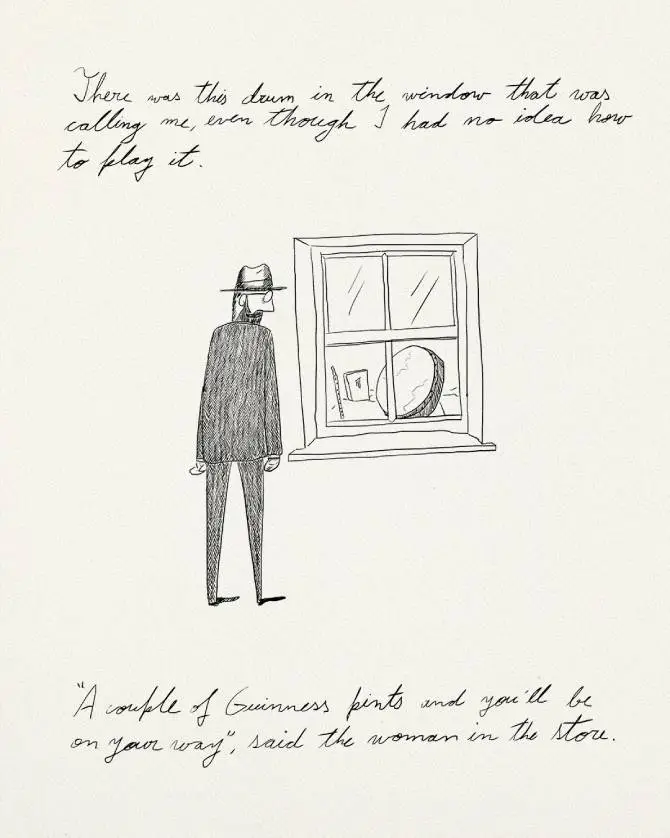 There was this drum in the window that was
calling me, even though I had no idea how
to play it.
"A couple of Guinness pints and you'll be
on your way", said the woman in the store.